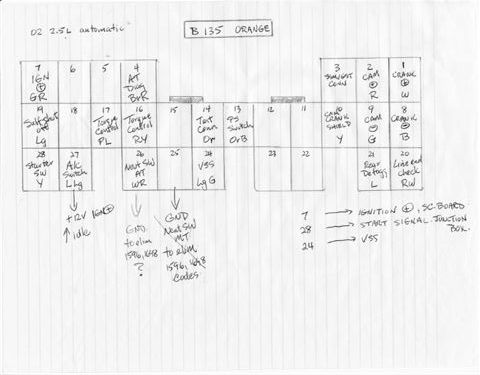 02 2.5L automatic
B 135 ORANGE
7 IGN ⊕ GR
6
5
4 AT Diag BrR
3 SUNLIGHT CONN
2 CAM ⊕ R
1 CRANK ⊕ W
19 shut off Lg
18
17 Torque Control PL
16 Torque Control RY
15
14 Test Conn Or
13 PS Switch OrB
12
11
10 CAM CRANK SHIELD Y
9 CAM ⊖ G
8 CRANK ⊖ B
28 Starter SW Y
27 A/C Switch LLg
26 Neut SW AT WR
25
24 VSS LgG
23
22
21 Rear Defogg L
20 Line end check RW
+12V IGN ⊕
↑ idle
GND
to elim
1596, 1698
?
GND
Neut SW
MT
to elim
1596, 1698
codes
7 → IGNITION ⊕, SC-BOARD
28 → START SIGNAL JUNCTION BOX.
24 → VSS